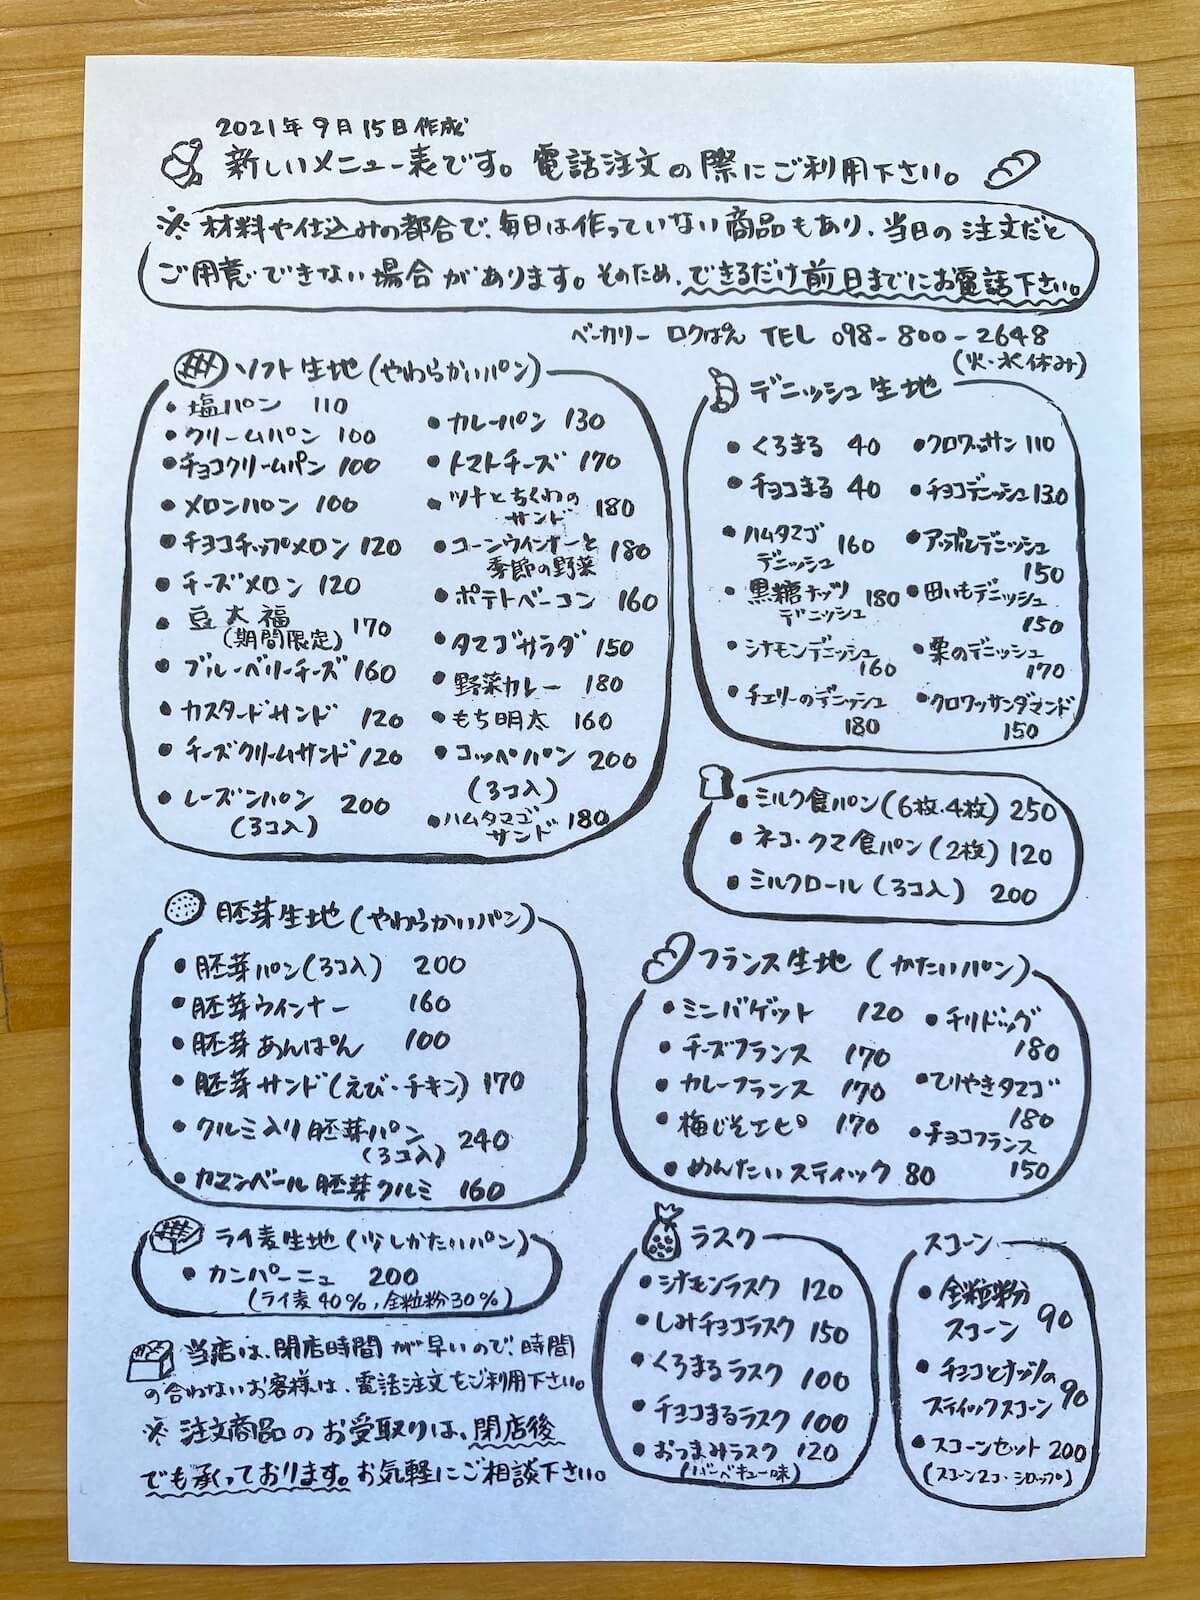 2021年9月15日作成
新しいメニュー表です。電話注文の際にご利用下さい。
※材料や仕込みの都合で、毎日は作っていない商品もあり、当日の注文だと
ご用意できない場合があります。そのため、できるだけ前日までにお電話下さい。
ベーカリー ロクぱん TEL 098-800-2648
(火・水休み)
ソフト生地(やわらかいパン)
・塩パン 110
・クリームパン 100
・チョコクリームパン 100
・メロンパン 100
・チョコチップメロン 120
・チーズメロン 120
・豆大福
(期間限定) 170
・ブルーベリーチーズ 160
・カスタードサンド 120
・チーズクリームサンド 120
・レーズンパン 200
(3コ入)
・カレーパン 130
・トマトチーズ 170
・ツナとちくわの
サンド 180
・コーンウインナーと
季節の野菜 180
・ポテトベーコン 160
・タマゴサラダ 150
・野菜カレー 180
・もち明太 160
・コッペパン 200
(3コ入)
・ハムタマゴ
サンド 180
デニッシュ生地
・くろまる 40
・チョコまる 40
・ハムタマゴ
デニッシュ 160
・黒糖ナッツ
デニッシュ 180
・シナモンデニッシュ
160
・チェリーのデニッシュ
180
・クロワッサン 110
・チョコデニッシュ 130
・アップルデニッシュ
150
・田いもデニッシュ
150
・栗のデニッシュ
170
・クロワッサンダマンド
150
・ミルク食パン(6枚.4枚) 250
・ネコ・クマ食パン(2枚) 120
・ミルクロール(3コ入) 200
胚芽生地(やわらかいパン)
・胚芽パン(3コ入) 200
・胚芽ウインナー 160
・胚芽あんぱん 100
・胚芽サンド(えび・チキン) 170
・クルミ入り胚芽パン
(3コ入) 240
・カマンベール胚芽クルミ 160
フランス生地(かたいパン)
・ミニバゲット 120
・チーズフランス 170
・カレーフランス 170
・梅じそエピ 170
・めんたいスティック 80
・チリドッグ
180
・てりやきタマゴ
180
・チョコフランス
150
ライ麦生地(少しかたいパン)
・カンパーニュ 200
(ライ麦40%,全粒粉30%)
当店は、閉店時間が早いので、時間
の合わないお客様は、電話注文をご利用下さい。
※注文商品のお受取りは、閉店後
でも承っております。お気軽にご相談下さい。
ラスク
・シナモンラスク 120
・しみチョコラスク 150
・くろまるラスク 100
・チョコまるラスク 100
・おつまみラスク 120
(バーベキュー味)
スコーン
・全粒粉
スコーン 90
・チョコとナッツの
スティックスコーン 90
・スコーンセット 200
(スコーン2コ・シロップ)